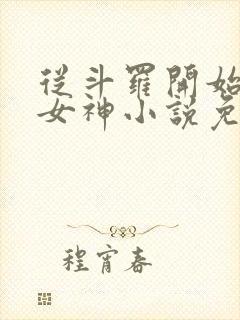 從斗羅開始
女神小說免
程宵春